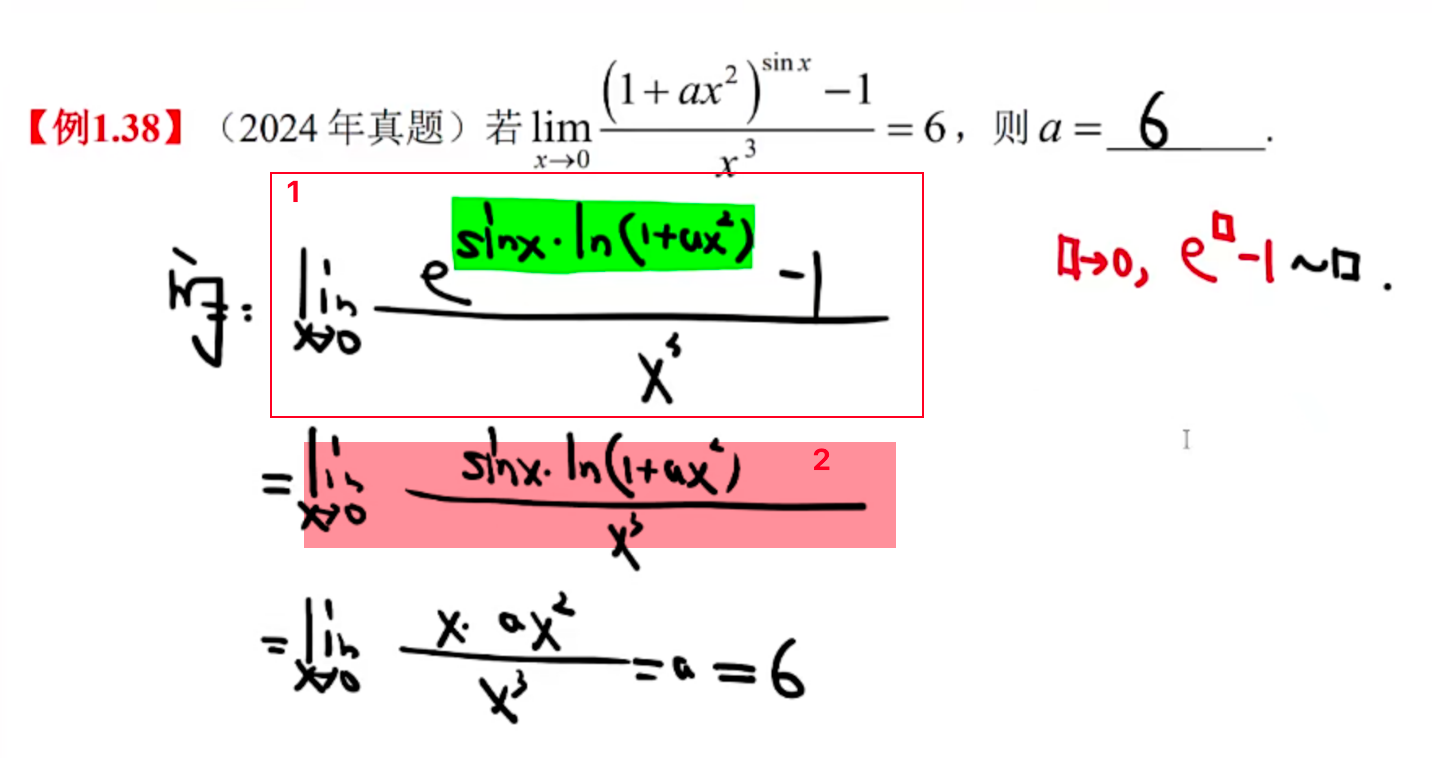 【例1.38】（2024 年真题）若 lim_{x→0} ((1+ax²)^{sin x} −1)/x³ = 6，则 a = 6.
1
lim_{x→0} (e^{sinx·ln(1+ax²)} -1)/x³
□→0, e^□-1~□.
= lim_{x→0} (sinx·ln(1+ax²))/x³ 2
= lim_{x→0} (x·ax²)/x³ = a = 6